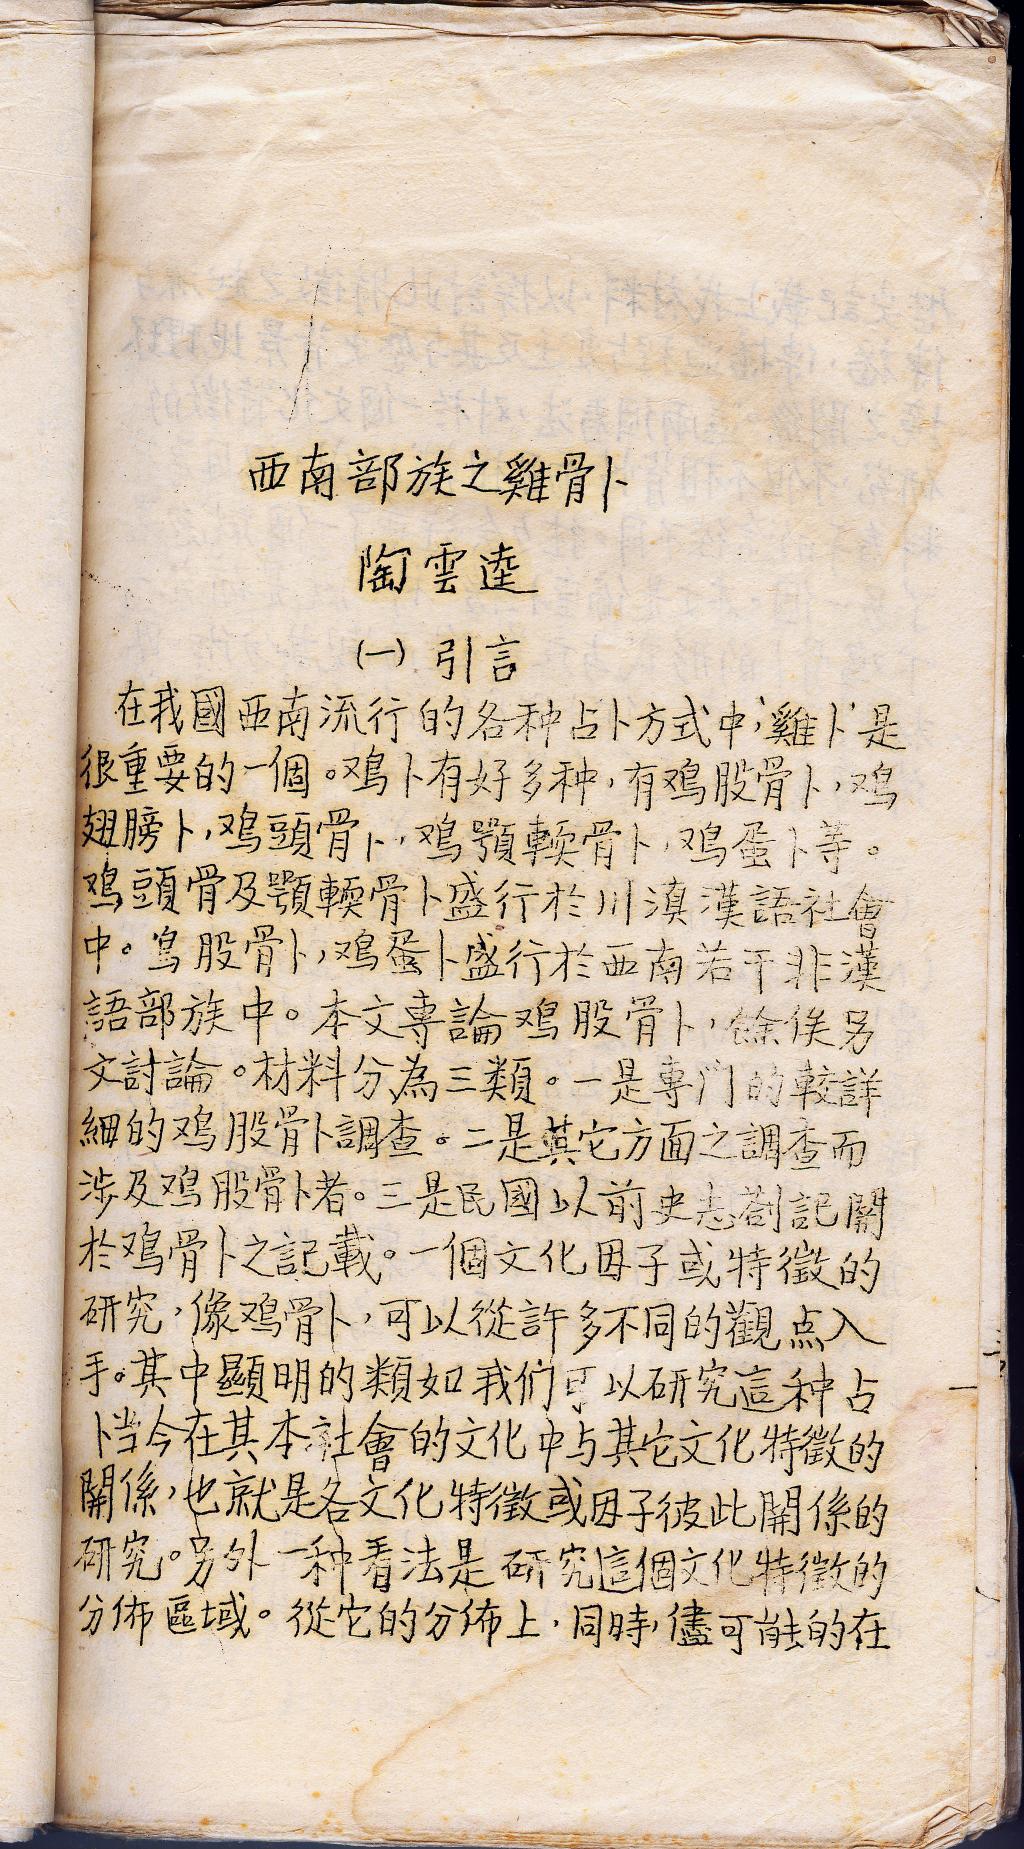 西南部族之雞骨卜
陶雲逵
(一) 引言
在我國西南流行的各种占卜方式中,‘雞卜’是
很重要的一個。鸡卜有好多种,有鸡股骨卜,鸡
翅膀卜,鸡頭骨卜,鸡顎輭骨卜,鸡蛋卜等。
鸡頭骨及顎輭骨卜盛行於川滇漢語社會
中。鸟股骨卜,鸡蛋卜盛行於西南若干非漢
語部族中。本文專論鸡股骨卜,餘俟另
文討論。材料分為三類。一是專门的較詳
細的鸡股骨卜調查。二是其它方面之調查而
涉及鸡股骨卜者。三是民國以前史志劄記關
於鸡骨卜之記載。一個文化因子或特徵的
研究,像鸡骨卜,可以從許多不同的觀点入
手。其中顯明的類如我们可以研究這种占
卜当今在其本社會的文化中与其它文化特徵的
關係,也就是各文化特徵或因子彼此關係的
研究。另外一种看法是研究這個文化特徵的
分佈區域。從它的分佈上,同時,儘可能的在